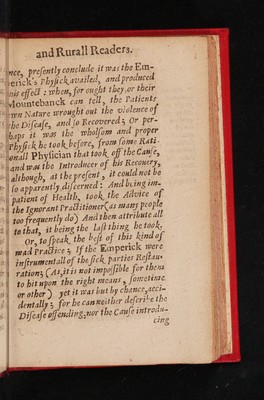 and Rurall Readers.
nce, presently conclude it was the Em-
perick's Physick availed, and produced
his effect: when, for ought they, or their
Mountebanck can tell, the Patients
own Nature wrought out the violence of
the Disease, and so Recovered; Or per-
haps it was the wholsom and proper
Physick he took before, from some Rati-
onall Physician that took off the Cause,
and was the Introducer of his Recovery,
although, at the present, it could not be
so apparently discerned: And being im-
patient of Health, took the Advice of
the Ignorant Practitioner (as many people
too frequently do) And then attribute all
to that, it being the last thing he took.
Or, to speak the best of this kind of
mad Practice; If the Emperick were
instrumentall of the sick parties Restau-
ration; (As, it is not impossible for them
to hit upon the right means, sometime
or other) yet it was but by chance, acci-
dentally; for he can neither describe the
Disease offending, nor the Cause introdu-
cing